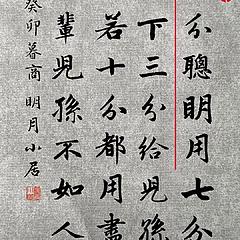 分聰明用七分
下三分給兒孫
若十分都用盡
輩兒孫不如人
癸卯暮商 明月小居